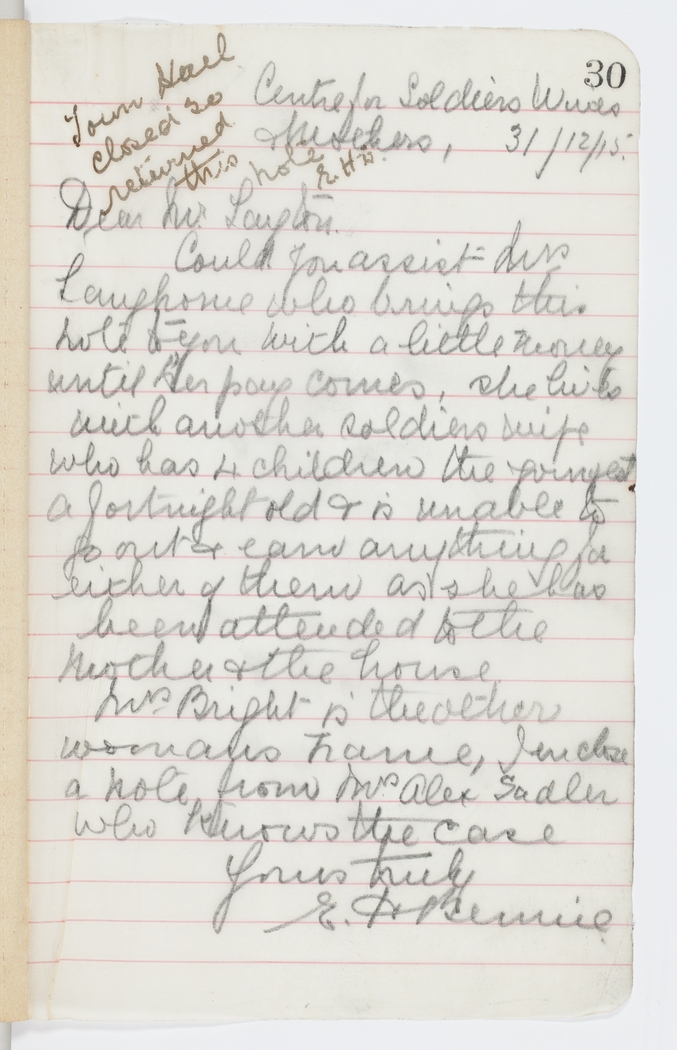 30
Town Hall
closed so
returned
this note
E.H.B.
Centre for Soldiers Wives
& Mothers, 31/12/15.
Dear Mr. Layton.
Could you assist Mrs
Langhorne who brings this
note to you with a little money
until her pay comes, she lives
with another soldiers wife
who has 4 children the youngest
a fortnight old & is unable to
go out & earn anything for
either of them as she has
been attended to the
Mother & the house
Mrs Bright is the other
womans name, I enclose
a note from Mrs Alex Sadler
who knows the case
Yours truly
E. H Bennie